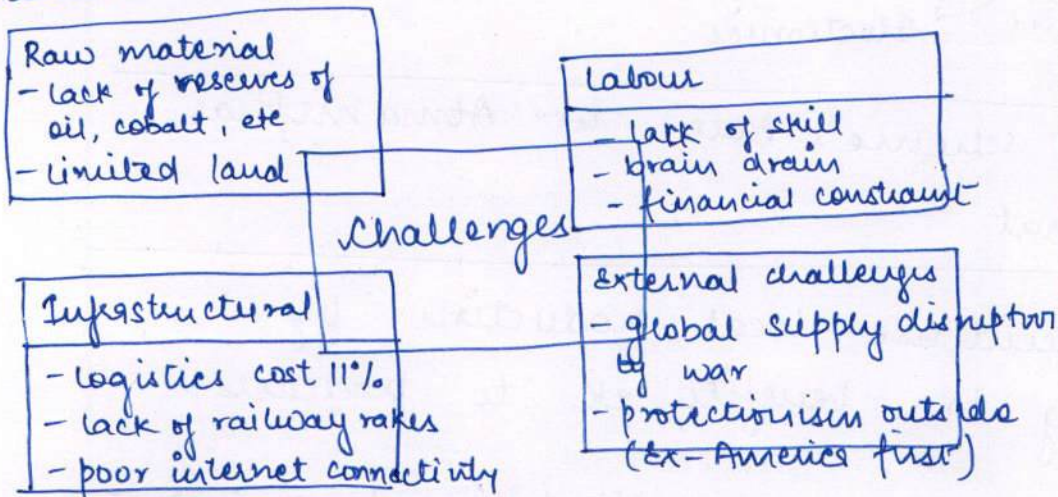 Raw material
- lack of reserves of
oil, cobalt, etc
- Limited land
Labour
- lack of skill
- brain drain
- financial constraint
Challenges
Infrastructural
- Logistics cost 11%
- lack of railway rakes
- poor internet connectivity
External challenges
- global supply disruption
by war
- protectionism outside
(Ex-America first)